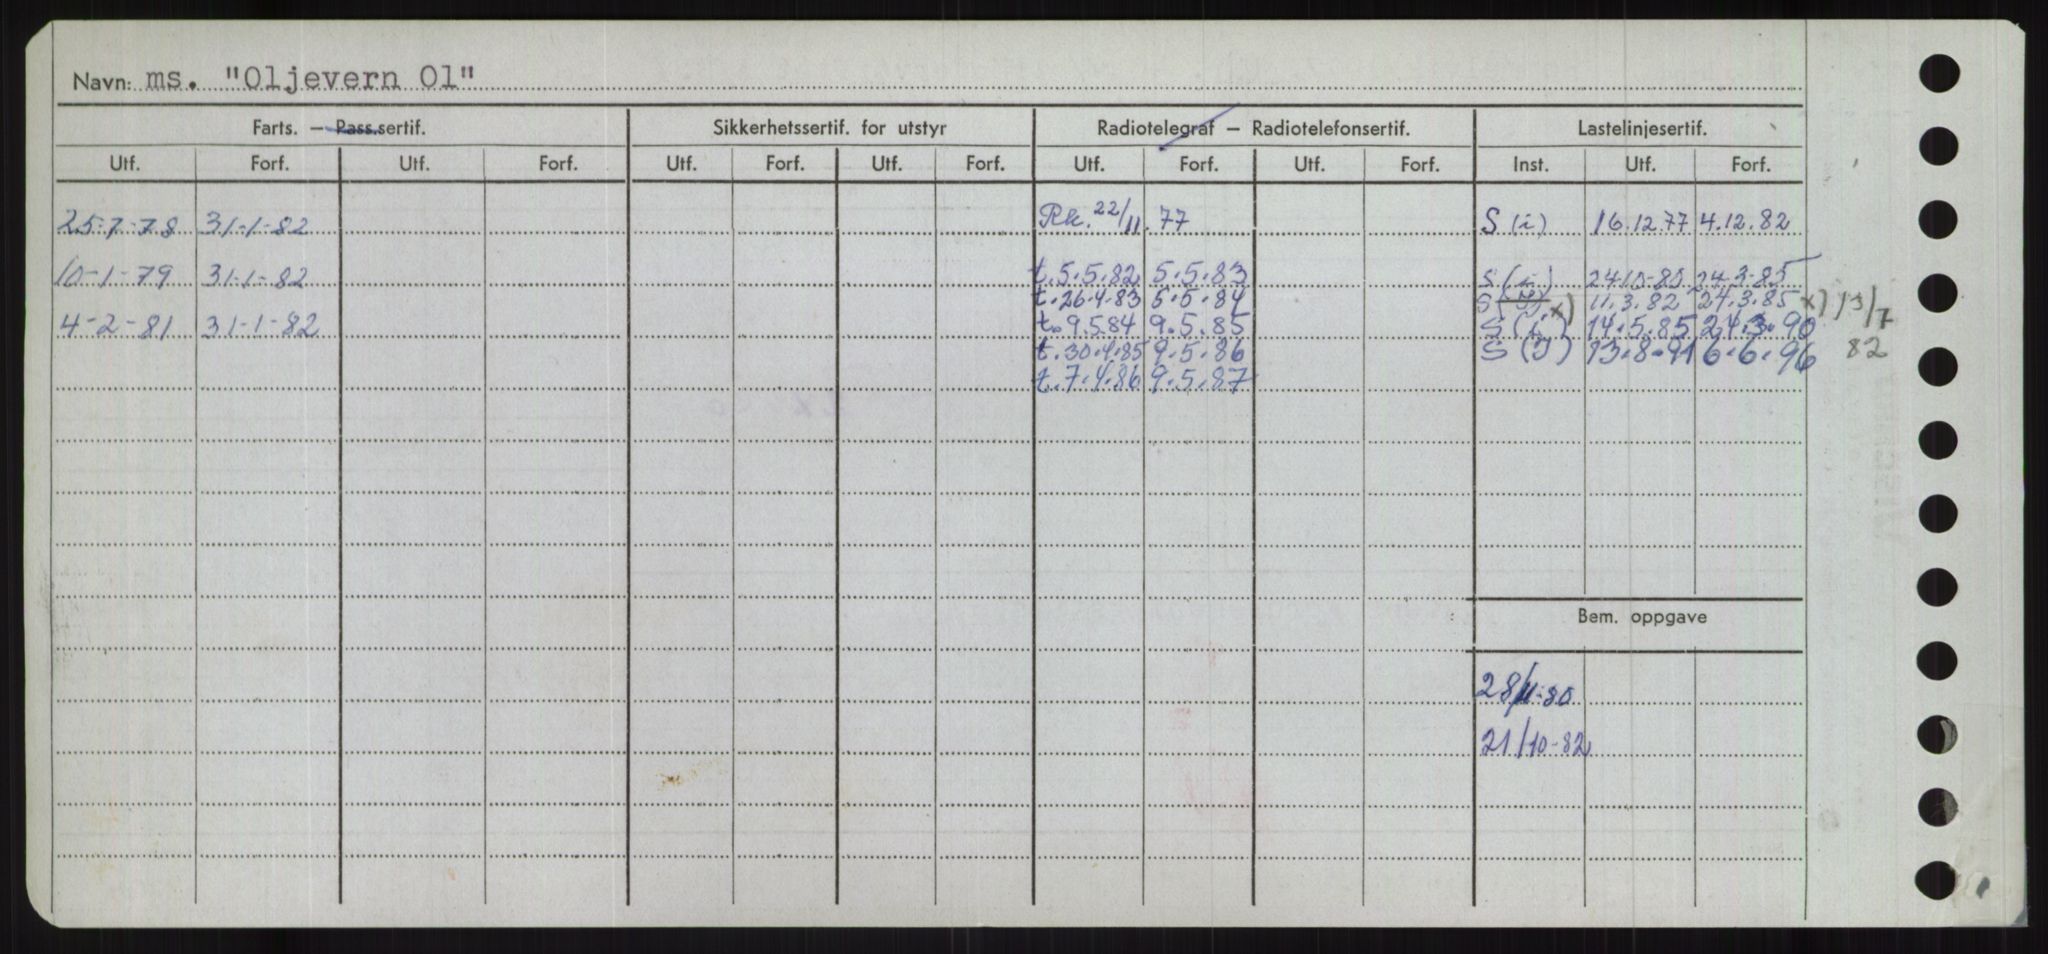 Navn: ms. "Oljevern Ol"
Farts. — Pass.sertif. Sikkerhetssertif. for utstyr Radiotelegraf — Radiotelefonsertif. Lastelinjesertif.
Utf. Forf. Utf. Forf. Utf. Forf. Utf. Forf. Utf. Forf. Utf. Forf. Inst. Utf. Forf.
25-7-78 31-1-82 Rk. 22/11.77 S (i) 16.12.77 4.12.82
10-1-79 31-1-82 t.5.5.82 5.5.83 S (i) 24-10-80 24-3-85
t.26.4.83 5.5.84 S x) 11.3.82 24.3.85 x) 13/7
4-2-81 31-1-82 t.9.5.84 9.5.85 S (i) 14.5.85 24.3.90
t.30.4.85 9.5.86 S (I) 13.8.91 6.6.96 82
t.7.4.86 9.5.87
Bem. oppgave
28/11-80
21/10-82